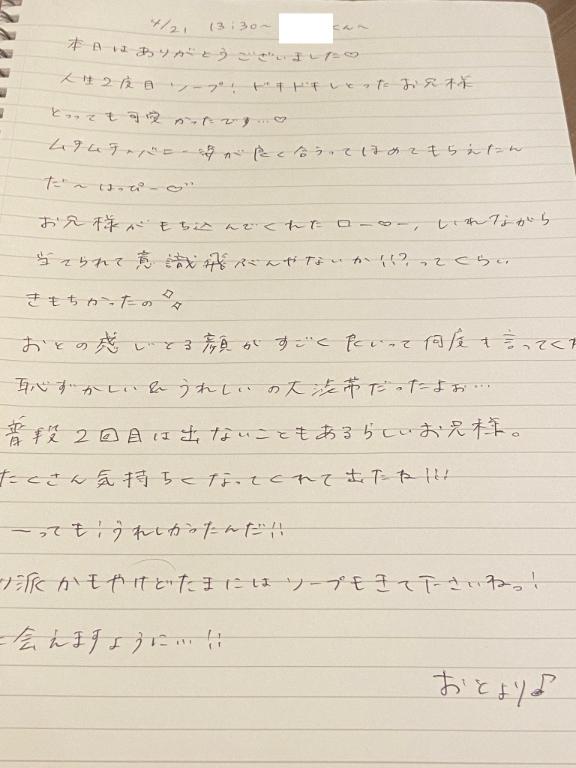 4/21 13:30~ くんへ
本日はありがとうございました♡
人生2度目ソープ!ドキドキしとったお兄様
とっっても可愛かったです…♡
ムチムチ バニー姿が良く合うってほめてもらえたん
だ~はっぴー♡
お兄様がもち込んでくれたロー, いれながら
当てられて意識飛ぶんやないか!!?ってくらい
きもちかったの
おとの感じとる顔がすごくたいって何度も言ってくれ
恥ずかしい&うれしいの大渋滞だったよぉ…
普段2回目は出ないこともあるらしいお兄様。
たくさん気持ちくなってくれて出たね!!!
ーっても!うれしかったんだ!!
り派かもやけどたまにはソープもきて下さいねっ!
に会えますように…!!
おとより♪